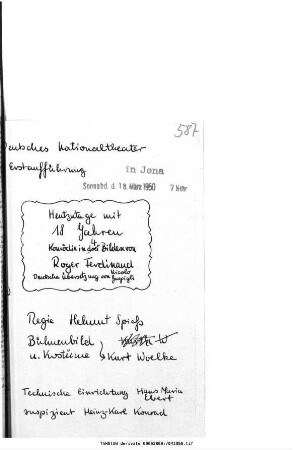 587
Deutsches Nationaltheater
Erstaufführung in Jena
Sonnabd. d. 18. März 1950 7 Uhr
Heutzutage mit
18 Jahren
Komödie in 4 Bildern von
Roger Ferdinand
Deutsche Übersetzung von
Regie Helmut Spieß
Bühnenbild
u. Kostüme Kurt Woelke
Technische Einrichtung Hans Maria
Ebert
Inspizient Heinz-Karl Konrad